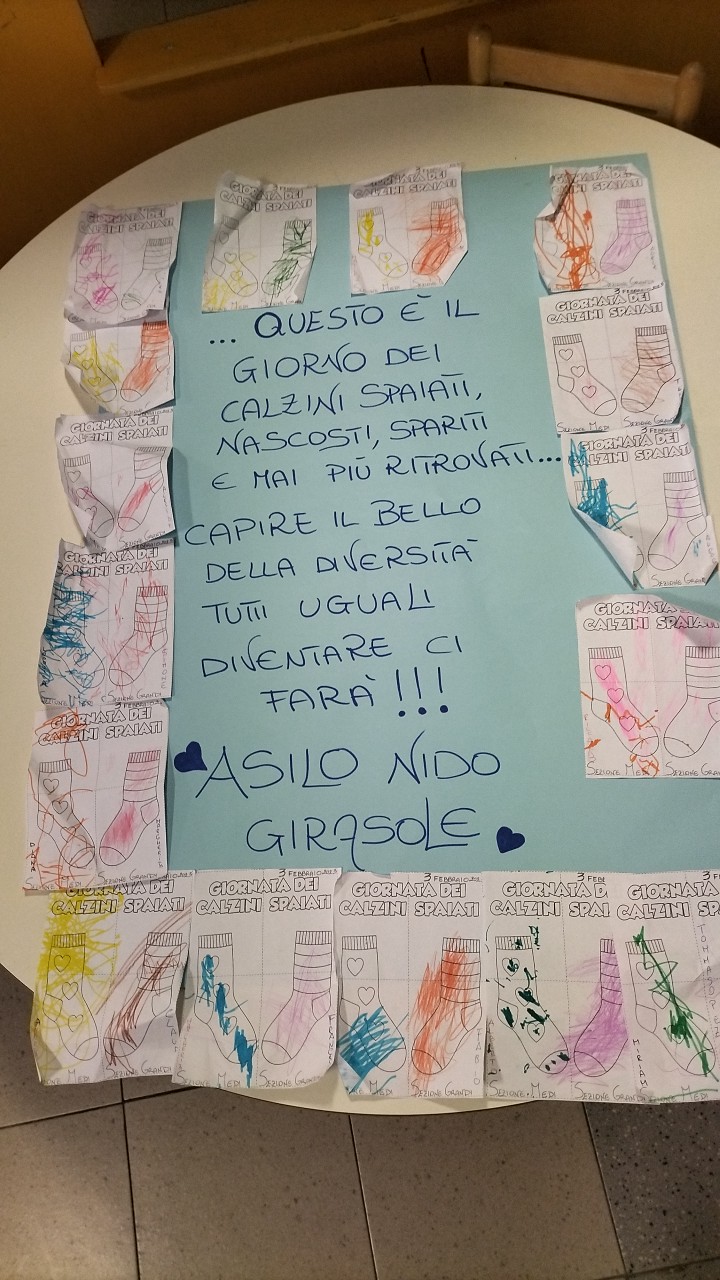 ... QUESTO È IL
GIORNO DEI
CALZINI SPAIATI,
NASCOSTI, SPARITI
E MAI PIÙ RITROVATI...
CAPIRE IL BELLO
DELLA DIVERSITÀ
TUTTI UGUALI
DIVENTARE CI
FARÀ!!!
ASILO NIDO
GIRASOLE
GIORNATA DEI
CALZINI SPAIATI
GIORNATA DEI
CALZINI SPAIATI
MEDI
GIORNATA DEI
CALZINI SPAIATI
MEDI
SEZIONE GRANDI
CALZINI SPAIATI
3 FEBBRAIO
GIORNATA DEI
CALZINI SPAIATI
SEZIONE MEDI
SEZIONE GRANDI
GIORNATA DEI
CALZINI SPAIATI
SEZIONE GRANDI
GIORNATA DEI
CALZINI SPAIATI
SEZIONE MEDI
SEZIONE GRANDI
GIORNATA DEI
CALZINI SPAIATI
SEZIONE GRANDI
GIORNATA DEI
CALZINI SPAIATI
SEZIONE MEDI
SEZIONE GRANDI
3 FEBBRAIO
GIORNATA DEI
CALZINI SPAIATI
DIANA
MARGHERITA
GIORNATA DEI
CALZINI SPAIATI
MEDI
SEZIONE GRANDI
3 FEBBRAIO
GIORNATA DEI
CALZINI SPAIATI
SEZIONE MEDI
SEZIONE GRANDI
3 FEBBRAIO
GIORNATA DEI
CALZINI SPAIATI
MEDI
SEZIONE GRANDI
3 FEB
GIORNATA D
CALZINI SPAI
SEZIONE MEDI
SEZIONE GRANDI
3 FEBBRAIO
GIORNATA DEI
CALZINI SPAIATI
MIRIAM
SEZIONE MEDI
SEZIONE GRANDI